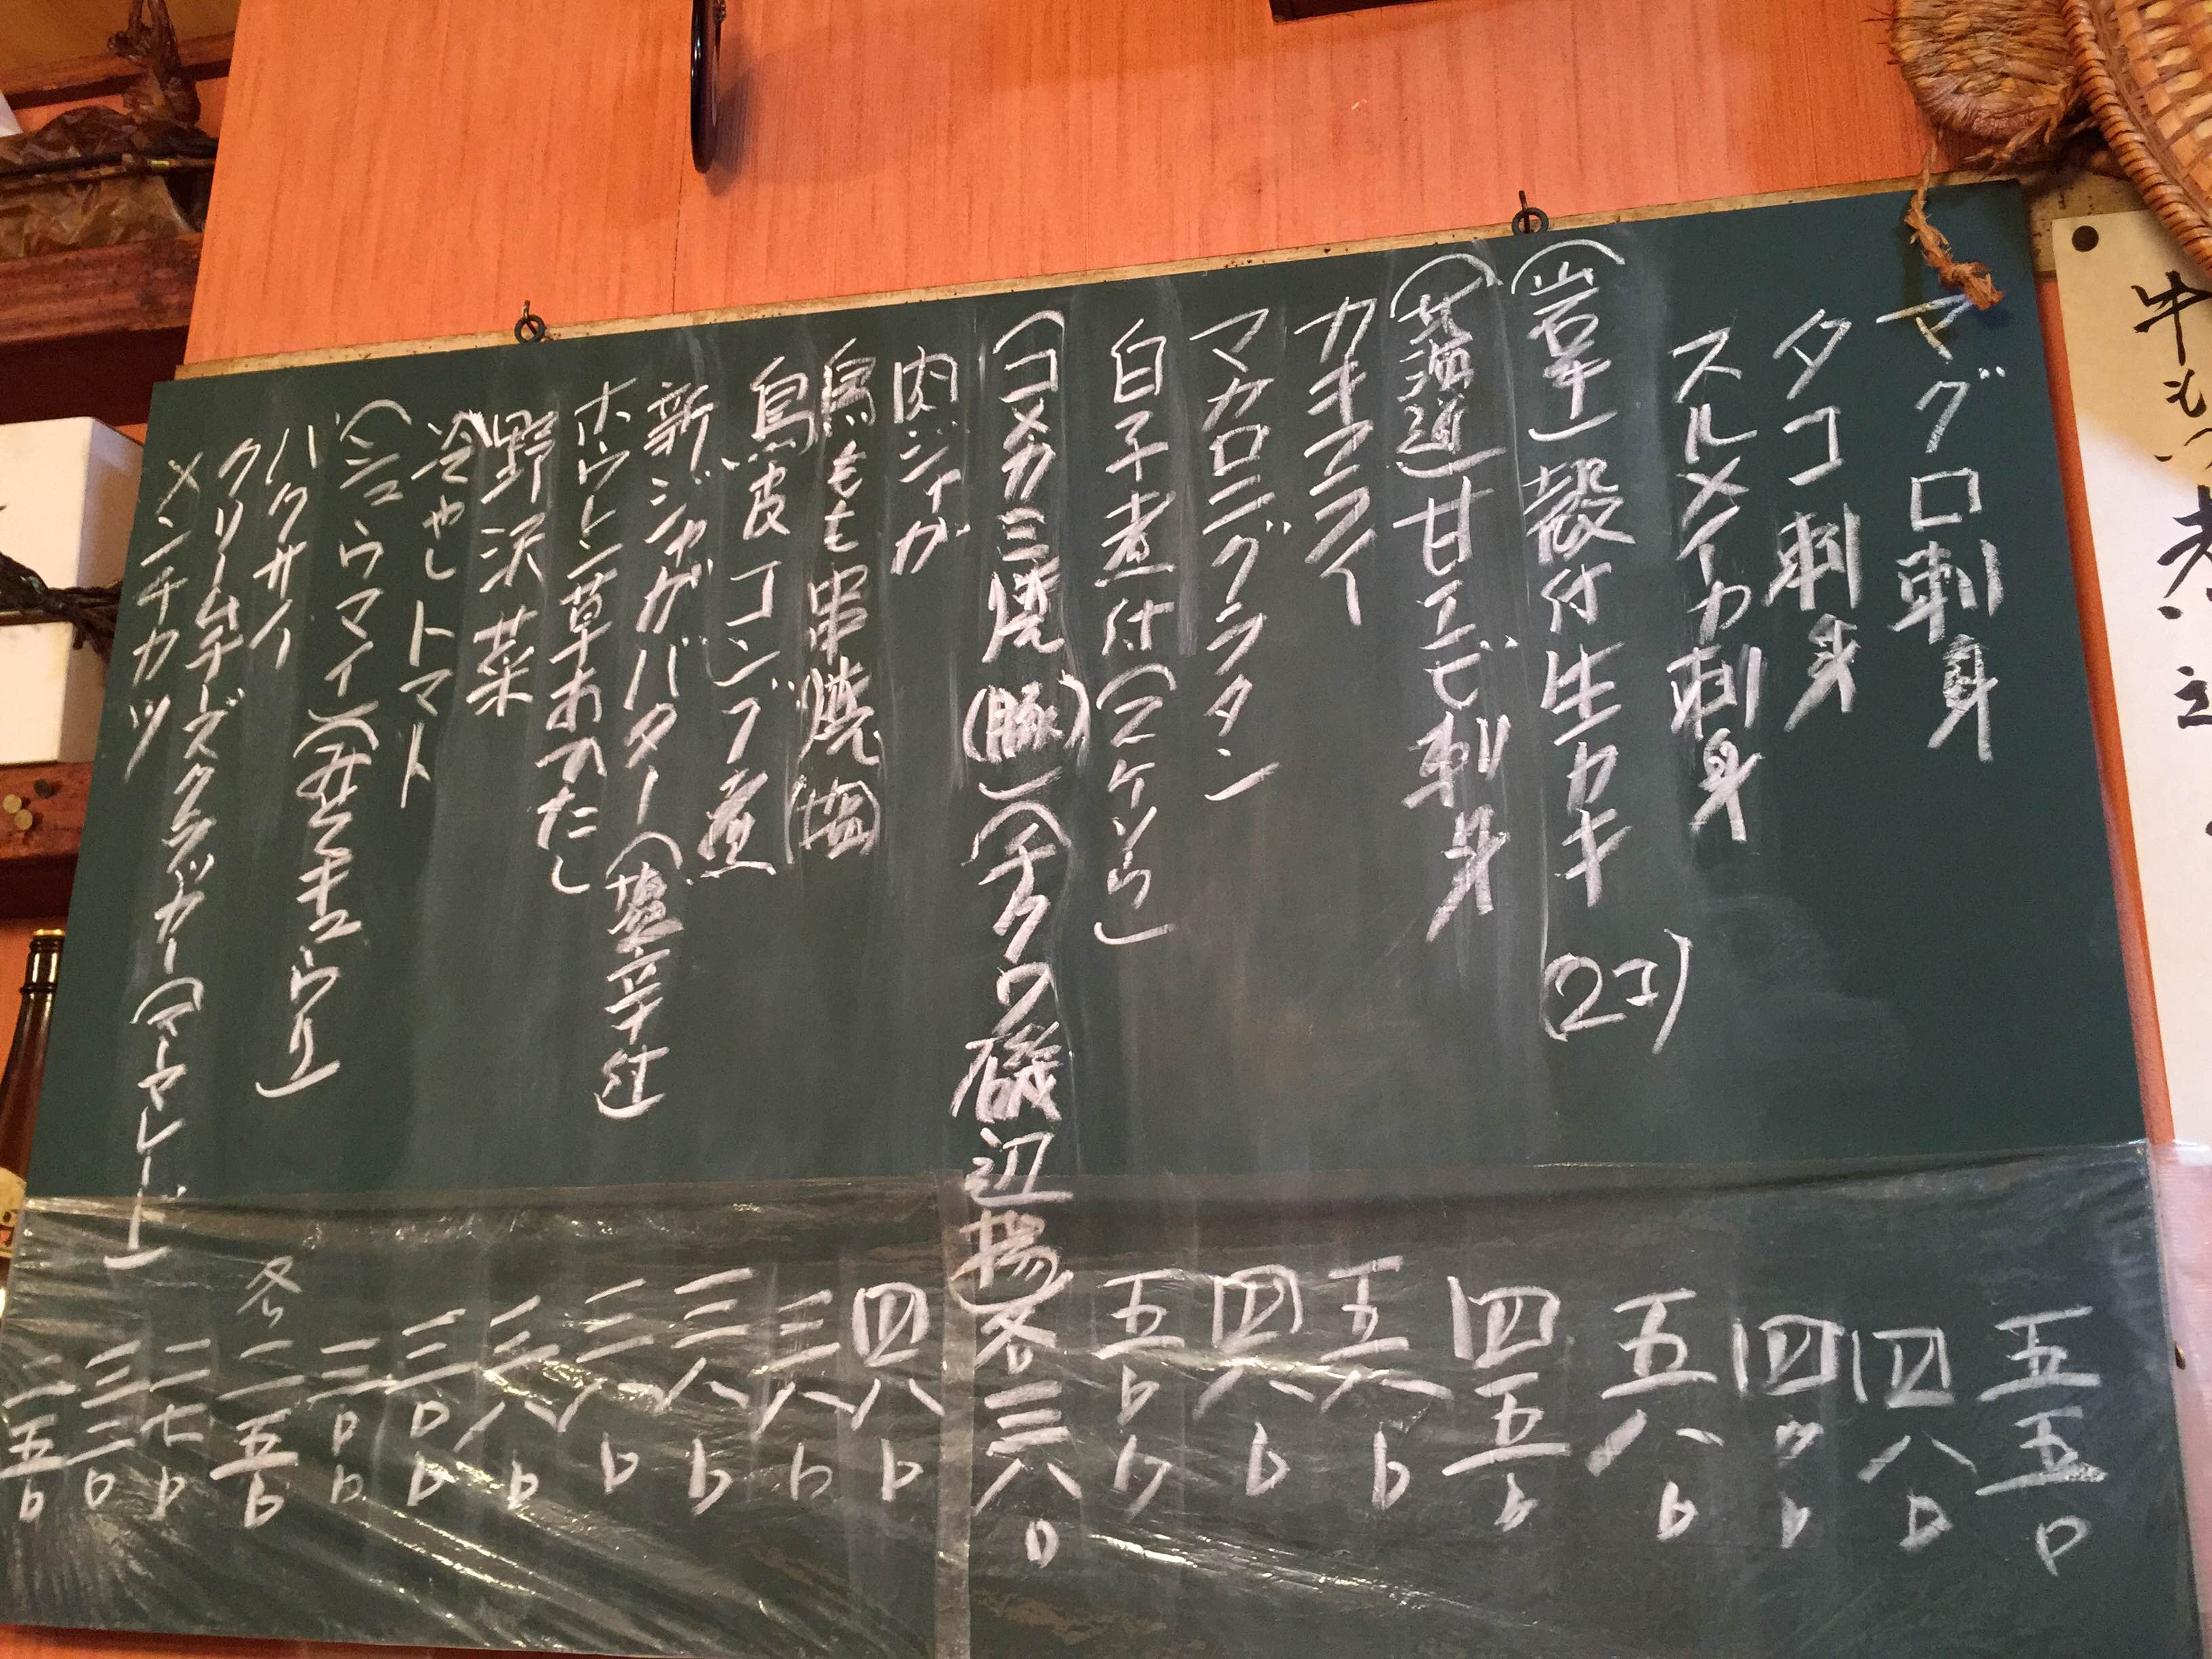 マグロ刺身 五五〇
タコ刺身 四八〇
スルメイカ刺身 四〇〇
(岩手)殻付生カキ(2コ) 五八〇
(北海道)甘エビ刺身 四五〇
カキフライ 五八〇
マカロニグラタン 四八〇
白子煮付(スケソウ) 五〇〇
(コメカミ焼(豚))(チクワ磯辺揚)各三八〇
肉ジャガ 四八〇
鳥もも串焼(塩) 三八〇
鳥皮コンブ煮 三八〇
新ジャガバター(塩辛付) 三八〇
ホウレン草おひたし 二八〇
野沢菜 三〇〇
冷やしトマト 三〇〇
(シュウマイ)(みそキュウリ) 各二五〇
ハクサイ 二七〇
クリームチーズクラッカー(マーマレード) 三三〇
メンチカツ 二五〇
牛も